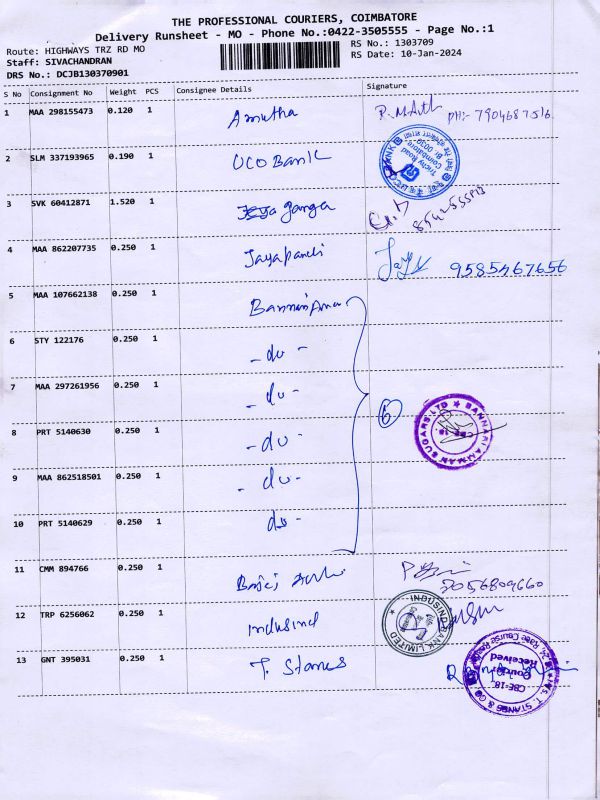 THE PROFESSIONAL COURIERS, COIMBATORE
Delivery Runsheet - MO - Phone No.:0422-3505555 - Page No.:1
Route: HIGHWAYS TRZ RD MO
RS No.: 1303709
Staff: SIVACHANDRAN
RS Date: 10-Jan-2024
DRS No.: DCJB130370901
S No Consignment No Weight PCS Consignee Details Signature
1 MAA 298155473 0.120 1 Amutha PH:- 7904687516
2 SLM 337193965 0.190 1 UCO Bank
Tricky Road
Coimbatore
Br. 0039
3 SVK 60412871 1.520 1 ganga
4 MAA 862207735 0.250 1 Jayapandi 9585467656
5 MAA 107662138 0.250 1
6 STY 122176 0.250 1 - do -
7 MAA 297261956 0.250 1 - do -
8 PRT 5140630 0.250 1 - do - 6 BANNARI AMMAN SUGARS LTD
9 MAA 862518501 0.250 1 - do -
10 PRT 5140629 0.250 1 do -
11 CMM 894766 0.250 1 Bajaj
12 TRP 6256062 0.250 1 indusind INDUSIND BANK LIMITED
13 GNT 395031 0.250 1 T. Stanes
Race Course Road
Courier
Received
CBE-18
T. STANES & CO